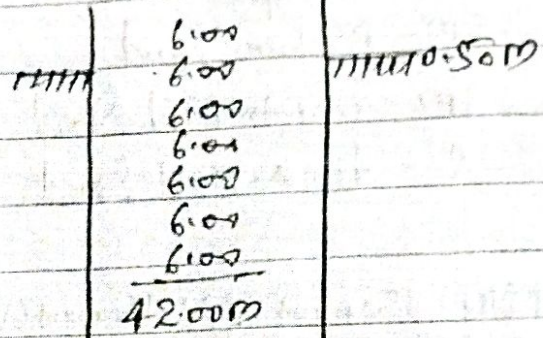 6.00
6.00 0.50m
6.00
6.00
6.00
6.00
6.00
42.00m